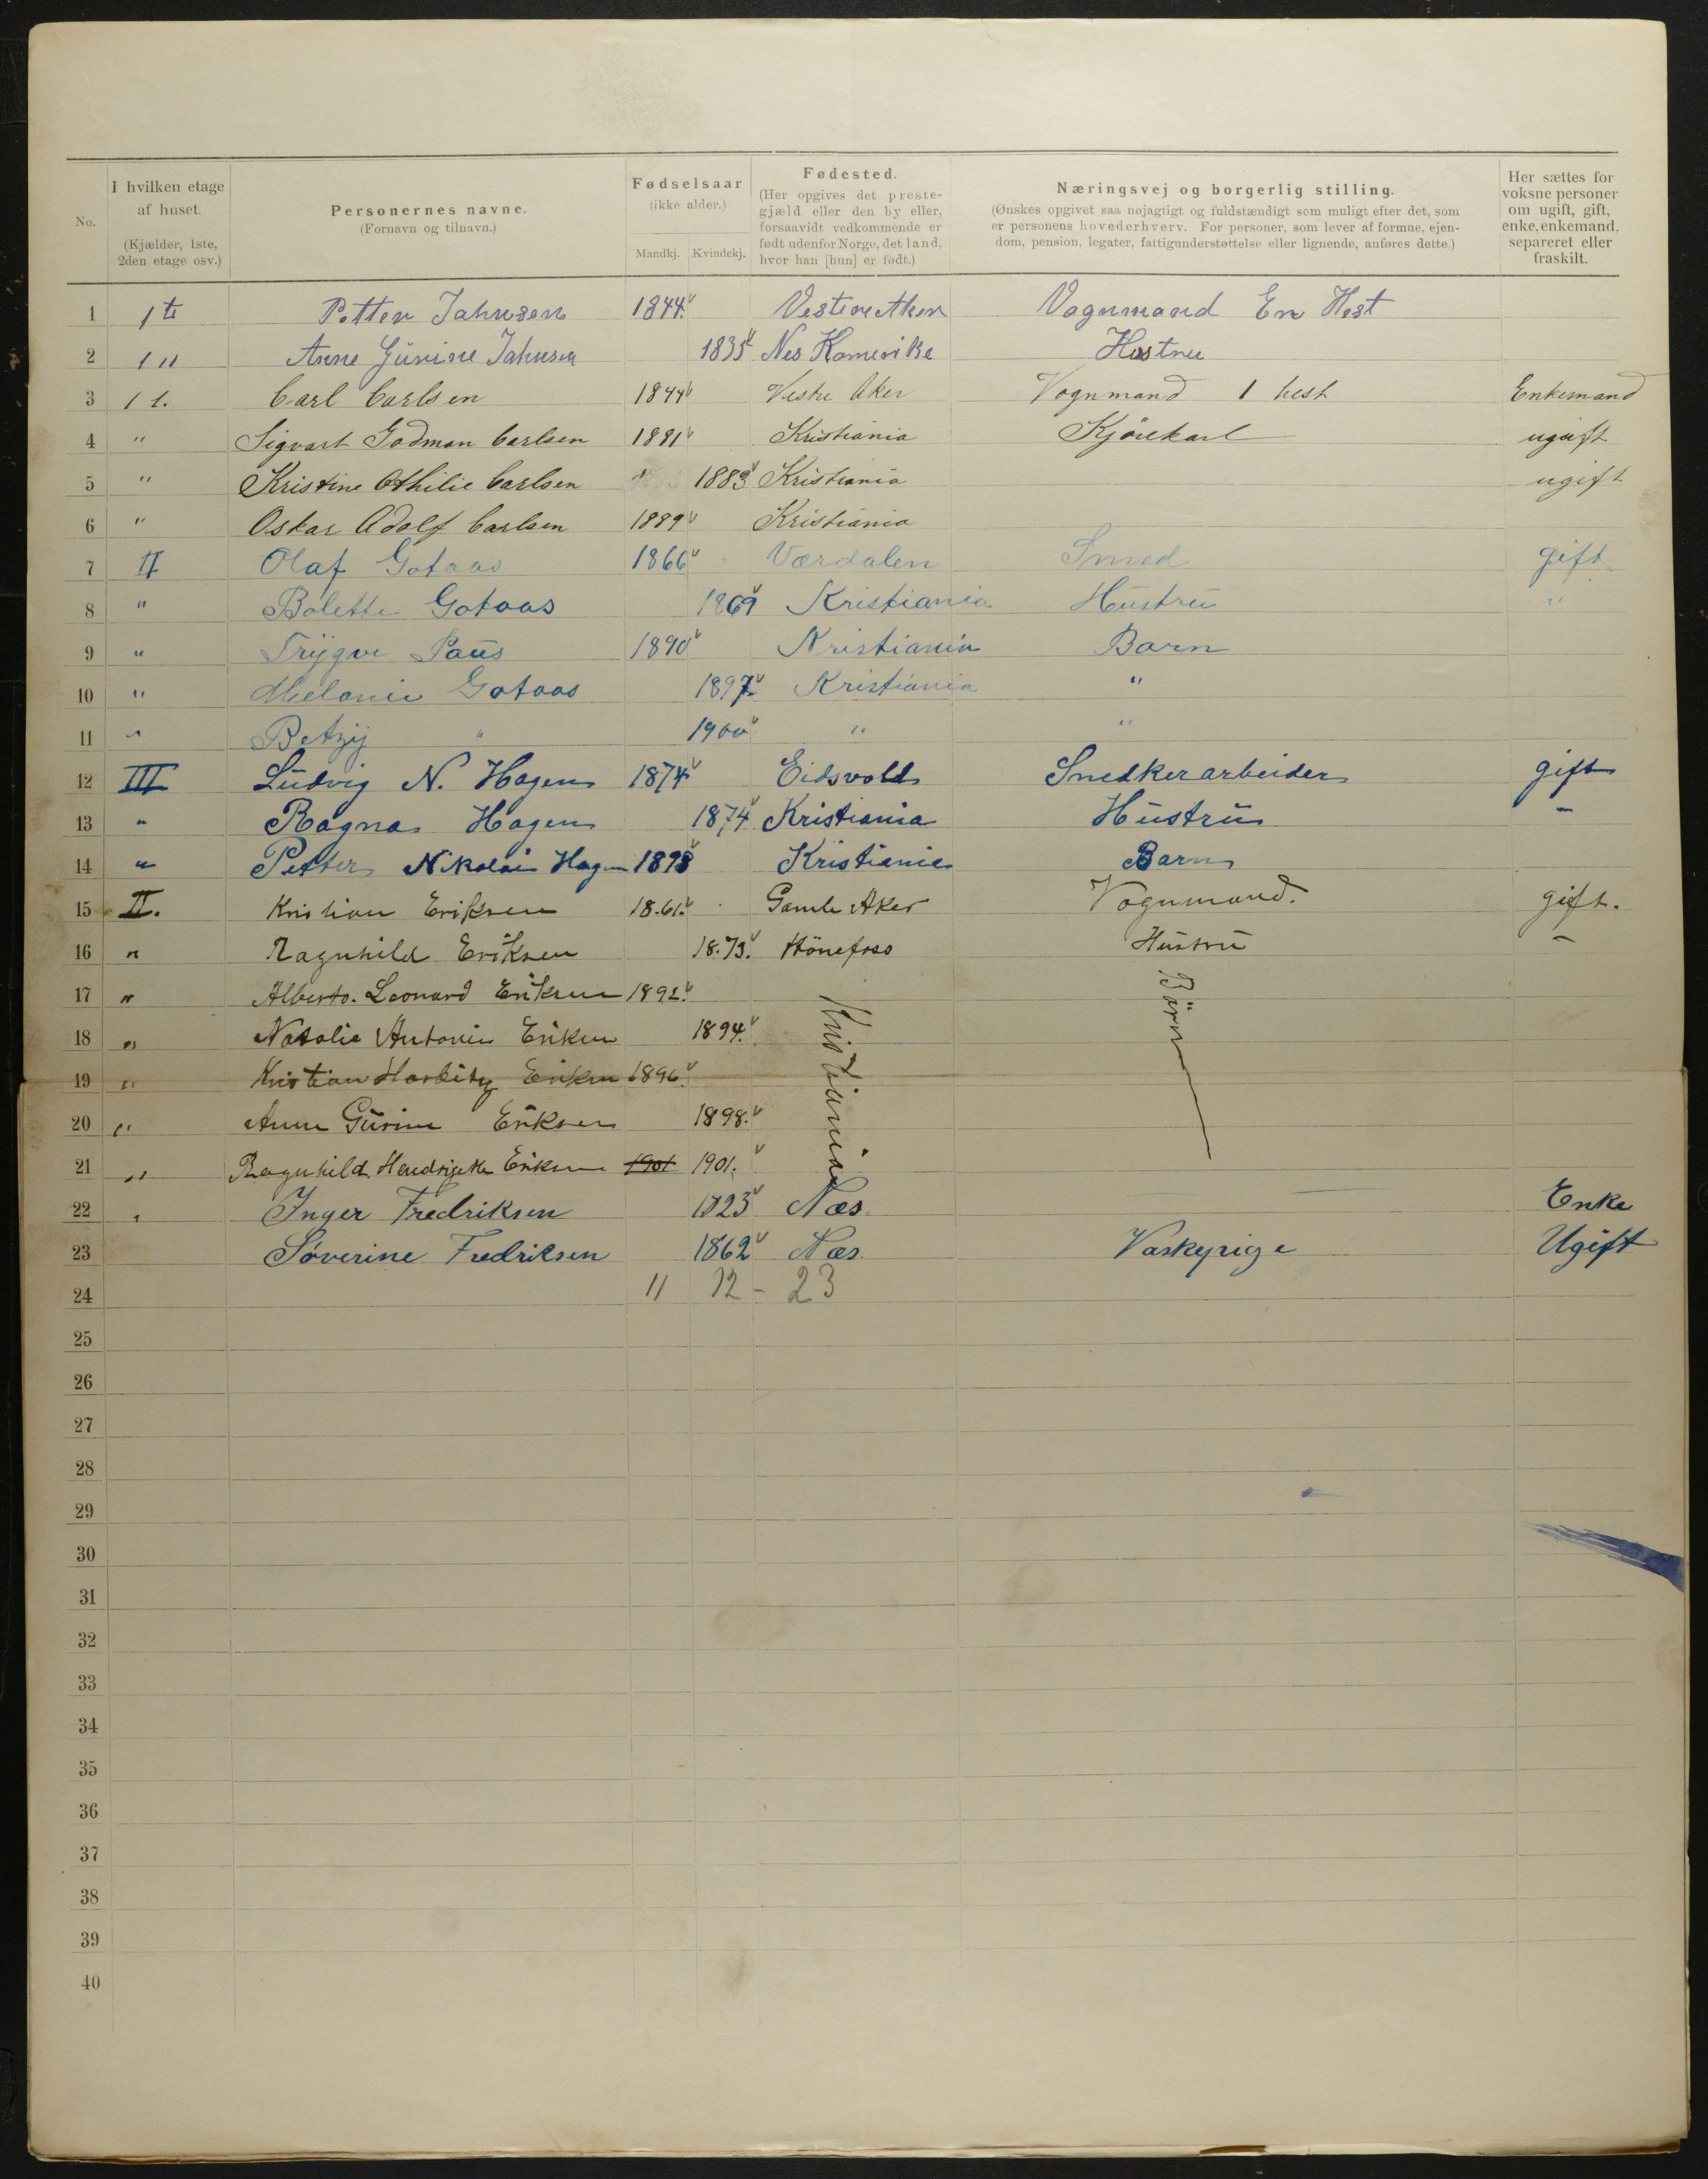 No.
I hvilken etage af huset.
(Kjælder, 1ste, 2den etage osv.)
Personernes navne.
(Fornavn og tilnavn.)
Fødselsaar
(ikke alder.)
Mandkj. Kvindekj.
Fødested.
(Her opgives det prestegjæld eller den by eller, forsaavidt vedkommende er født udenfor Norge, det land, hvor han [hun] er født.)
Næringsvej og borgerlig stilling.
(Ønskes opgivet saa nøjagtigt og fuldstændigt som muligt efter det, som er personens hovederhverv. For personer, som lever af formue, ejendom, pension, legater, fattigunderstøttelse eller lignende, anføres dette.)
Her sættes for voksne personer om ugift, gift, enke, enkemand, separeret eller fraskilt.
1 1te Petter Jahnsen 1844 Vestre Aker Vognmand En Hest
2 1 " Anne Gurine Jahnsen 1835 Nes Romerike Hostrue
3 1 t. Carl Carlsen 1844 Vestre Aker Vognmand 1 hest Enkemand
4 " Sigvart Godman Carlsen 1881 Kristiania Kjørekarl ugift
5 " Kristine Othilie Carlsen 1883 Kristiania ugift
6 " Oskar Adolf Carlsen 1889 Kristiania
7 II Olaf Gotaas 1866 Værdalen Smed gift
8 " Bolette Gotaas 1869 Kristiania Hustru "
9 " Trygve Paus 1890 Kristiania Barn
10 " Melanie Gotaas 1897 Kristiania "
11 " Betzy " 1900 " "
12 III Ludvig N. Hagen 1874 Eidsvold Snedkerarbeider gift
13 " Ragna Hagen 1874 Kristiania Hustru -
14 " Petter Nikolai Hagen 1898 Kristiania Barn
15 II. Kristian Eriksen 18.61. Gamle Aker Vognmand. gift.
16 " Ragnhild Eriksen 18.73. Hönefoss Hustru -
17 " Alberto. Leonard Eriksen 1892. Kristiania Börn
18 " Natalie Antonie Eriksen 1894.
19 " Kristian Eriksen 1896.
20 " Anne Gurine Eriksen 1898.
21 " Ragnhild Eriksen 1901 1901.
22 " Inger Fredriksen 1823 Næs. Enke
23 Søverine Fredriksen 1862 Næs. Vaskepige Ugift
24 11 12 - 23
25
26
27
28
29
30
31
32
33
34
35
36
37
38
39
40